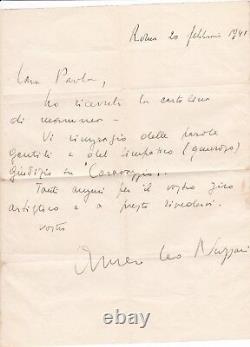 Roma 20 febbraio 1941
Cara Paola,
ho ricevuto la cartolina
di
Vi ringrazio delle parole
gentili e del simpatico (generoso)
giudizio su "Caravaggio".
Tanti auguri per il vostro giro
artistico e a presto rivederci.
vostro
Amedeo Nazzari